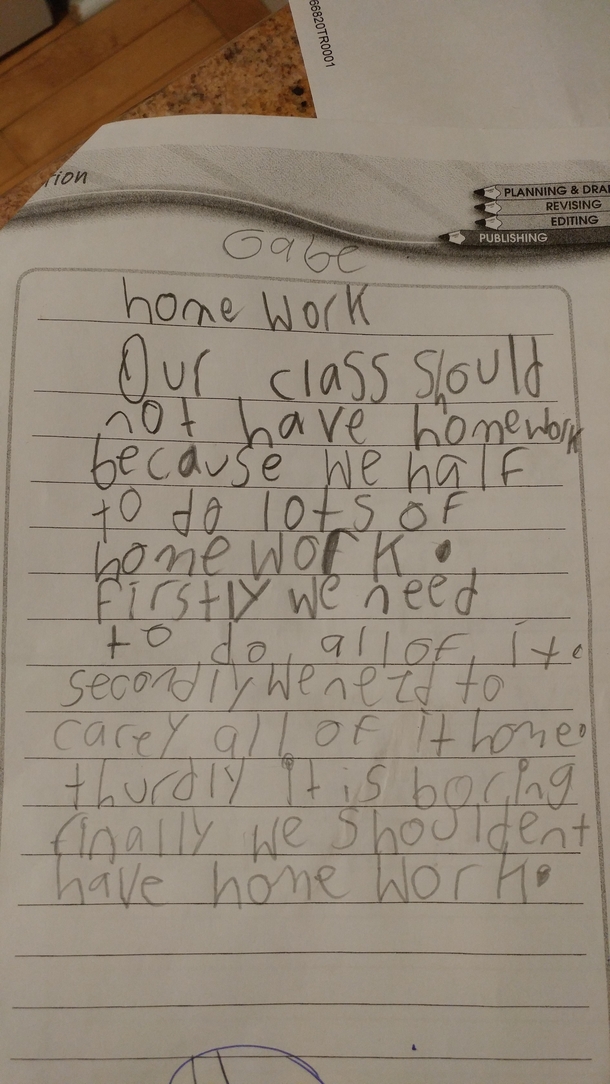 66820TR0001
tion
PLANNING & DRA
REVISING
EDITING
PUBLISHING
Gabe
home work
Our class should
not have homework
because we half
to do lots of
home work.
Firstly we need
to do all of it.
secondly we need to
carey all of it home.
thurdly it is boring
finally we shouldent
have home work.